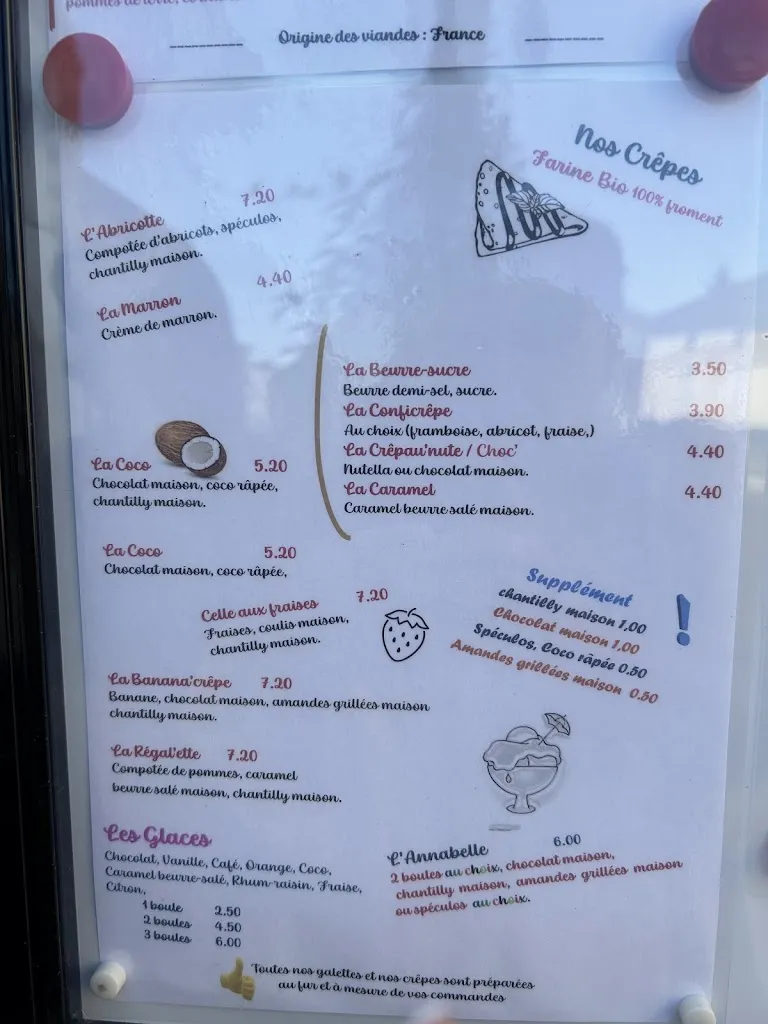 Origine des viandes : France
Nos Crêpes
Farine Bio 100% froment
L'Abricotte 7.20
Compotée d'abricots, spéculos,
chantilly maison.
La Marron 4.40
Crème de marron.
La Beurre-sucre 3.50
Beurre demi-sel, sucre.
La Conficrêpe 3.90
Au choix (framboise, abricot, fraise,)
La Crêpau'nute / Choc' 4.40
Nutella ou chocolat maison.
La Caramel 4.40
Caramel beurre salé maison.
La Coco 5.20
Chocolat maison, coco râpée,
chantilly maison.
La Coco 5.20
Chocolat maison, coco râpée,
Celle aux fraises 7.20
Fraises, coulis maison,
chantilly maison.
Supplément
chantilly maison 1,00
Chocolat maison 1,00
Spéculos, Coco râpée 0.50
Amandes grillées maison 0.50
!
La Banana'crêpe 7.20
Banane, chocolat maison, amandes grillées maison
chantilly maison.
La Régal'ette 7.20
Compotée de pommes, caramel
beurre salé maison, chantilly maison.
Les Glaces
Chocolat, Vanille, Café, Orange, Coco,
Caramel beurre-salé, Rhum-raisin, Fraise,
Citron,
1 boule 2.50
2 boules 4.50
3 boules 6.00
L'Annabelle 6.00
2 boules au choix, chocolat maison,
chantilly maison, amandes grillées maison
ou spéculos au choix.
Toutes nos galettes et nos crêpes sont préparées
au fur et à mesure de vos commandes